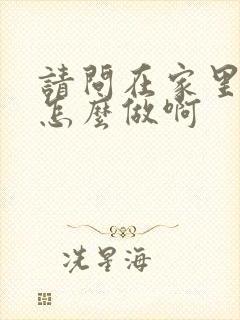 請問在家里
怎麼做啊
冼星海